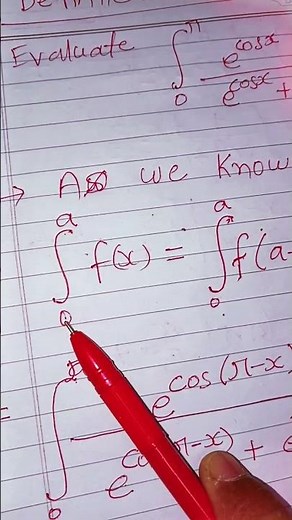 Evaluate ∫₀^π e^cosx / e^cosx +
→ As we know
∫₀^a f(x) = ∫₀^a f(a-
= ∫₀ e^cos(π-x) / e^cos(π-x) +